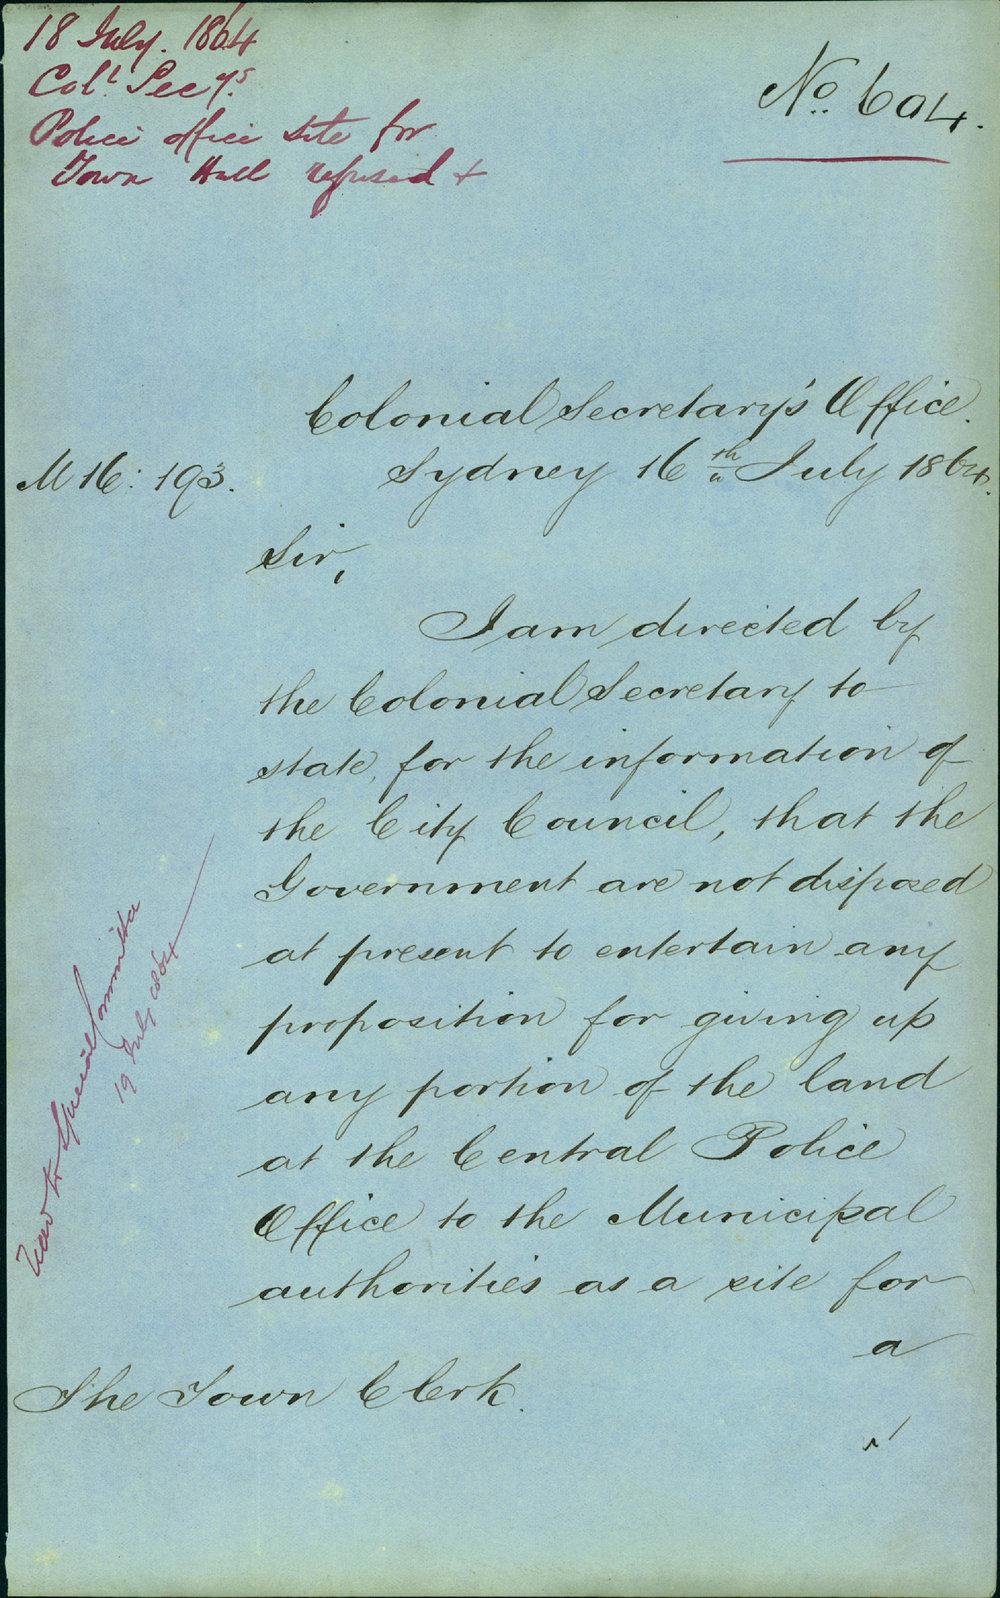 18 July. 1864
Col.l Secy's.
Police office site for
Town Hall refused +
No. 604.
Colonial Secretary's Office.
Sydney 16th July 1864.
M 16: 193.
Sir,
I am directed by
the Colonial Secretary to
state, for the information of
the City Council, that the
Government are not disposed
at present to entertain any
proposition for giving up
any portion of the land
at the Central Police
Office to the Municipal
authorities as a site for
a
The Town Clerk.
to Special Committee
19 July 1864